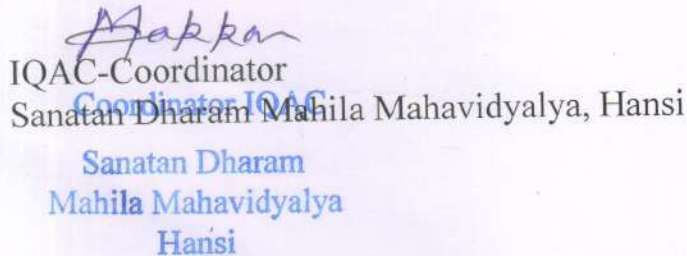 Makkar
IQAC-Coordinator
Sanatan Dharam Mahila Mahavidyalya, Hansi
Coordinator IQAC
Sanatan Dharam
Mahila Mahavidyalya
Hansi